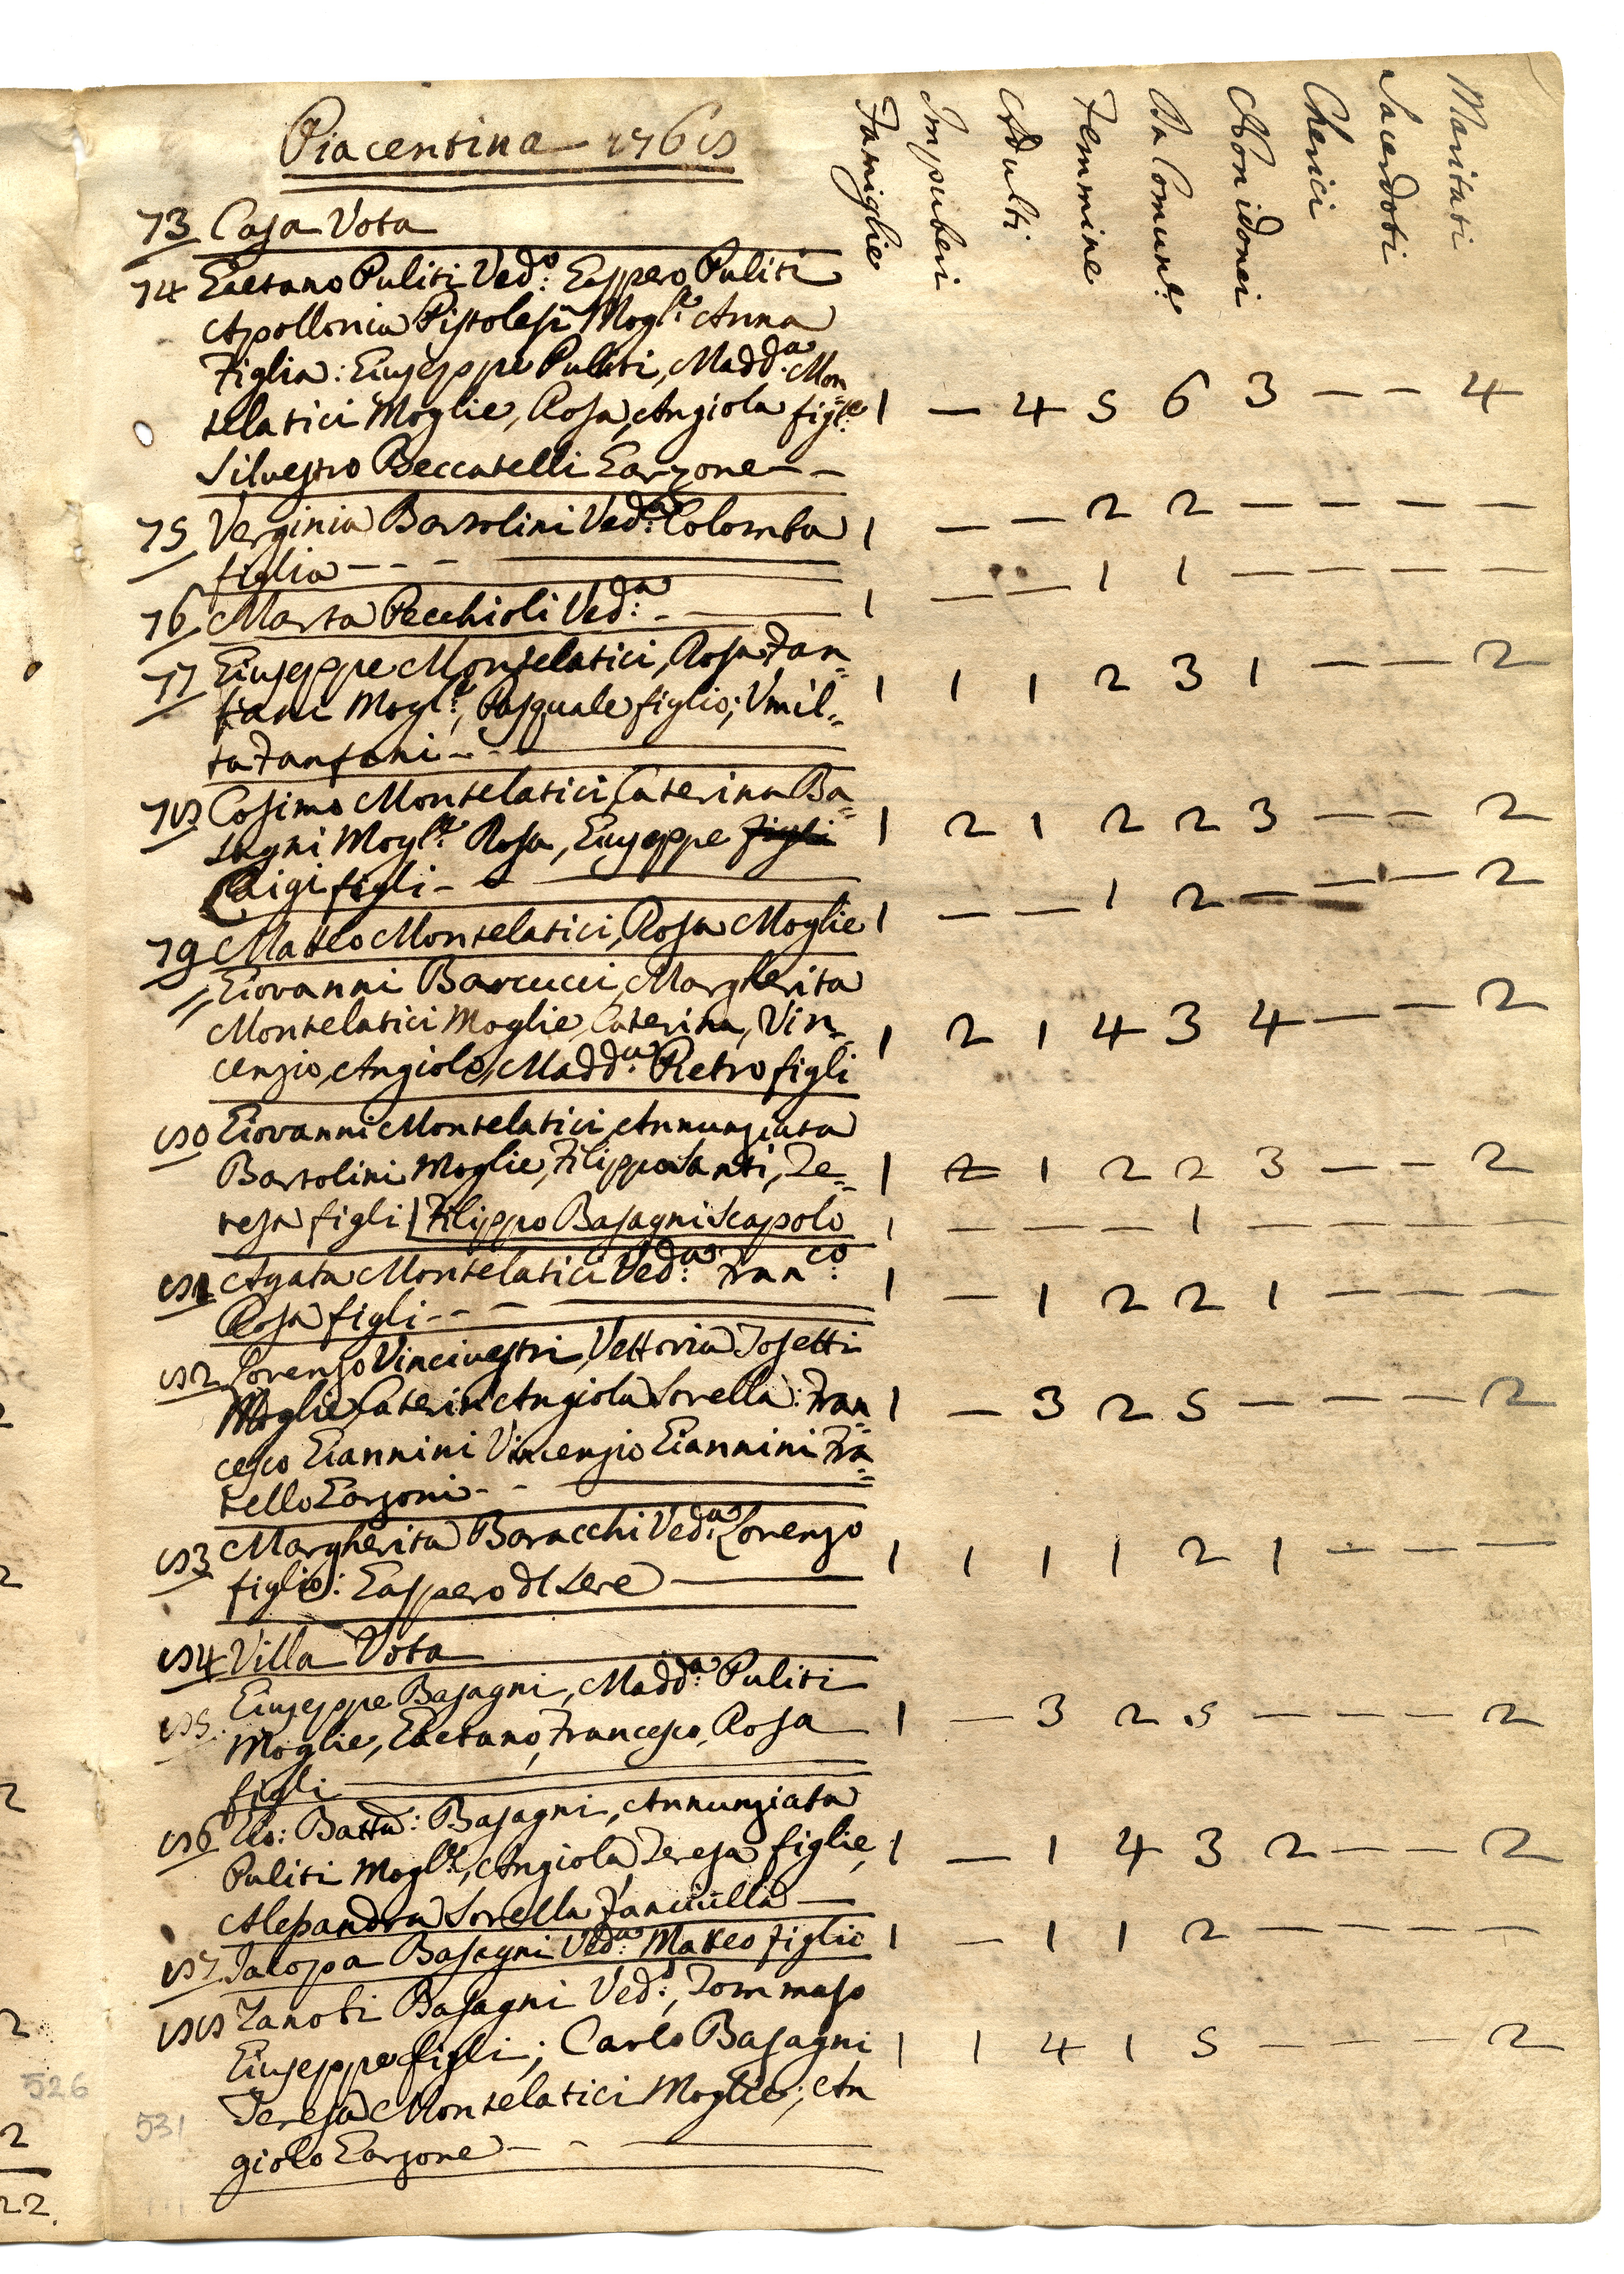 Piacentina 1768
Famiglie Impuberi Adulti Femmine Da Comun.e Non idonei Cherici Sacerdoti Maritati
73 Casa Vota
74 Gaetano Puliti Ved.o: Gasspero Puliti
Apollonia Pistolesi Mogl.e Anna
Figlia: Giuseppe Puliti, Madd.a Mon
telatici Moglie, Rosa, Angiola figl.e 1 — 4 5 6 3 — — 4
Silvestro Beccatelli Garzone — —
75 Verginia Bartolini Ved.a Colomba 1 — — 2 2 — — — —
figlia — — —
76 Marta Pecchioli Ved.a — 1 — — 1 1 — — — —
77 Giuseppe Montelatici, Rosa Fan=
fani Mogl.e, Pasquale figlio; Vmil= 1 1 1 2 3 1 — — 2
ta Fanfani — —
78 Cosimo Montelatici, Caterina Ba=
sagni Mogl.e Rosa, Giuseppe figli 1 2 1 2 2 3 — — 2
Luigi figli — —
79 Matteo Montelatici, Rosa Moglie 1 — — 1 2 — — — 2
Giovanni Barcucci, Margherita
Montelatici Moglie, Caterina, Vin= 1 2 1 4 3 4 — — 2
cenzio, Angiolo, Madd.a Pietro figli
80 Giovanni Montelatici, Annunziata
Bartolini Moglie, Filippo Santi, Te= 1 2 1 2 2 3 — — 2
resa figli | Filippo Basagni Scapolo 1 — — — 1 — — — —
81 Agata Montelatici Ved.a: Fran.co: 1 — 1 2 2 1 — — —
Rosa figli — — —
82 Lorenzo Vincivestri, Vettoria Tosetti
Moglie Caterin Angiola Sorella: Fran 1 — 3 2 5 — — — 2
cesco Giannini Vincenzio Giannini Fra=
tello Garzoni — —
83 Margherita Baracchi Ved.a Lorenzo 1 1 1 1 2 1 — — —
figlio: Gasspero dl Sere —
84 Villa Vota
85. Giuseppe Basagni, Madd.a Puliti
Moglie, Gaetano, Francesco, Rosa 1 — 3 2 5 — — — 2
figli
86 Gio: Batta: Basagni, Annunziata
Puliti Mogl.e, Angiola, Teresa figlie, 1 — 1 4 3 2 — — 2
Alessandra Sorella Fanciulla —
87 Jacopa Basagni Ved.a Matteo figlio 1 — 1 1 2 — — — —
88 Zanobi Basagni Ved.o, Tommaso
Giuseppe figli; Carlo Basagni 1 1 4 1 5 — — — 2
Teresa Montelatici Moglie; An
giolo Garzone — —
526
531
22.